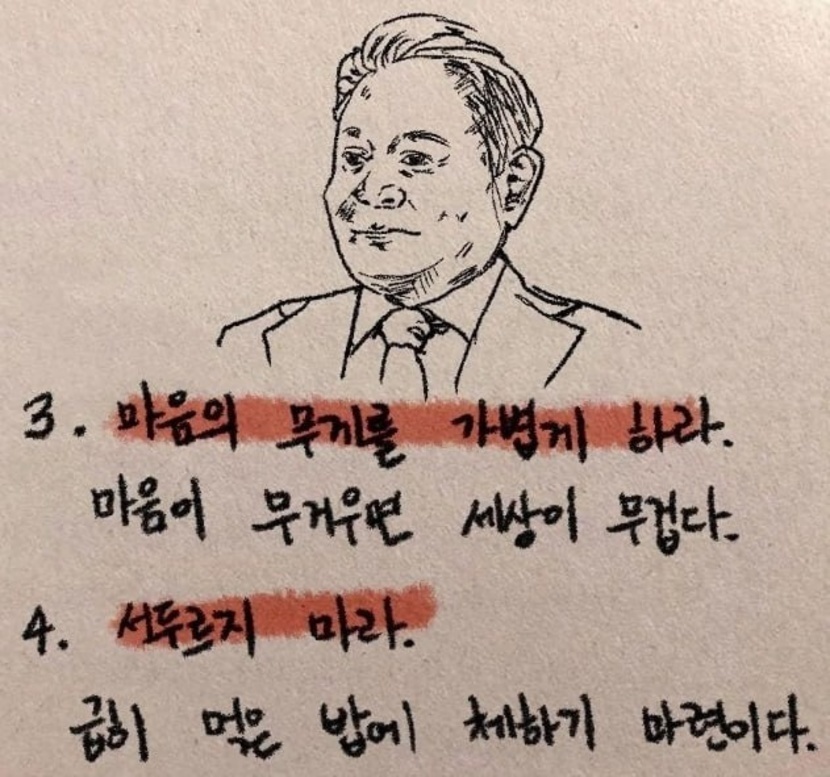 3. 마음의 무게를 가볍게 하라.
마음이 무거우면 세상이 무겁다.
4. 서두르지 마라.
급히 먹은 밥에 체하기 마련이다.